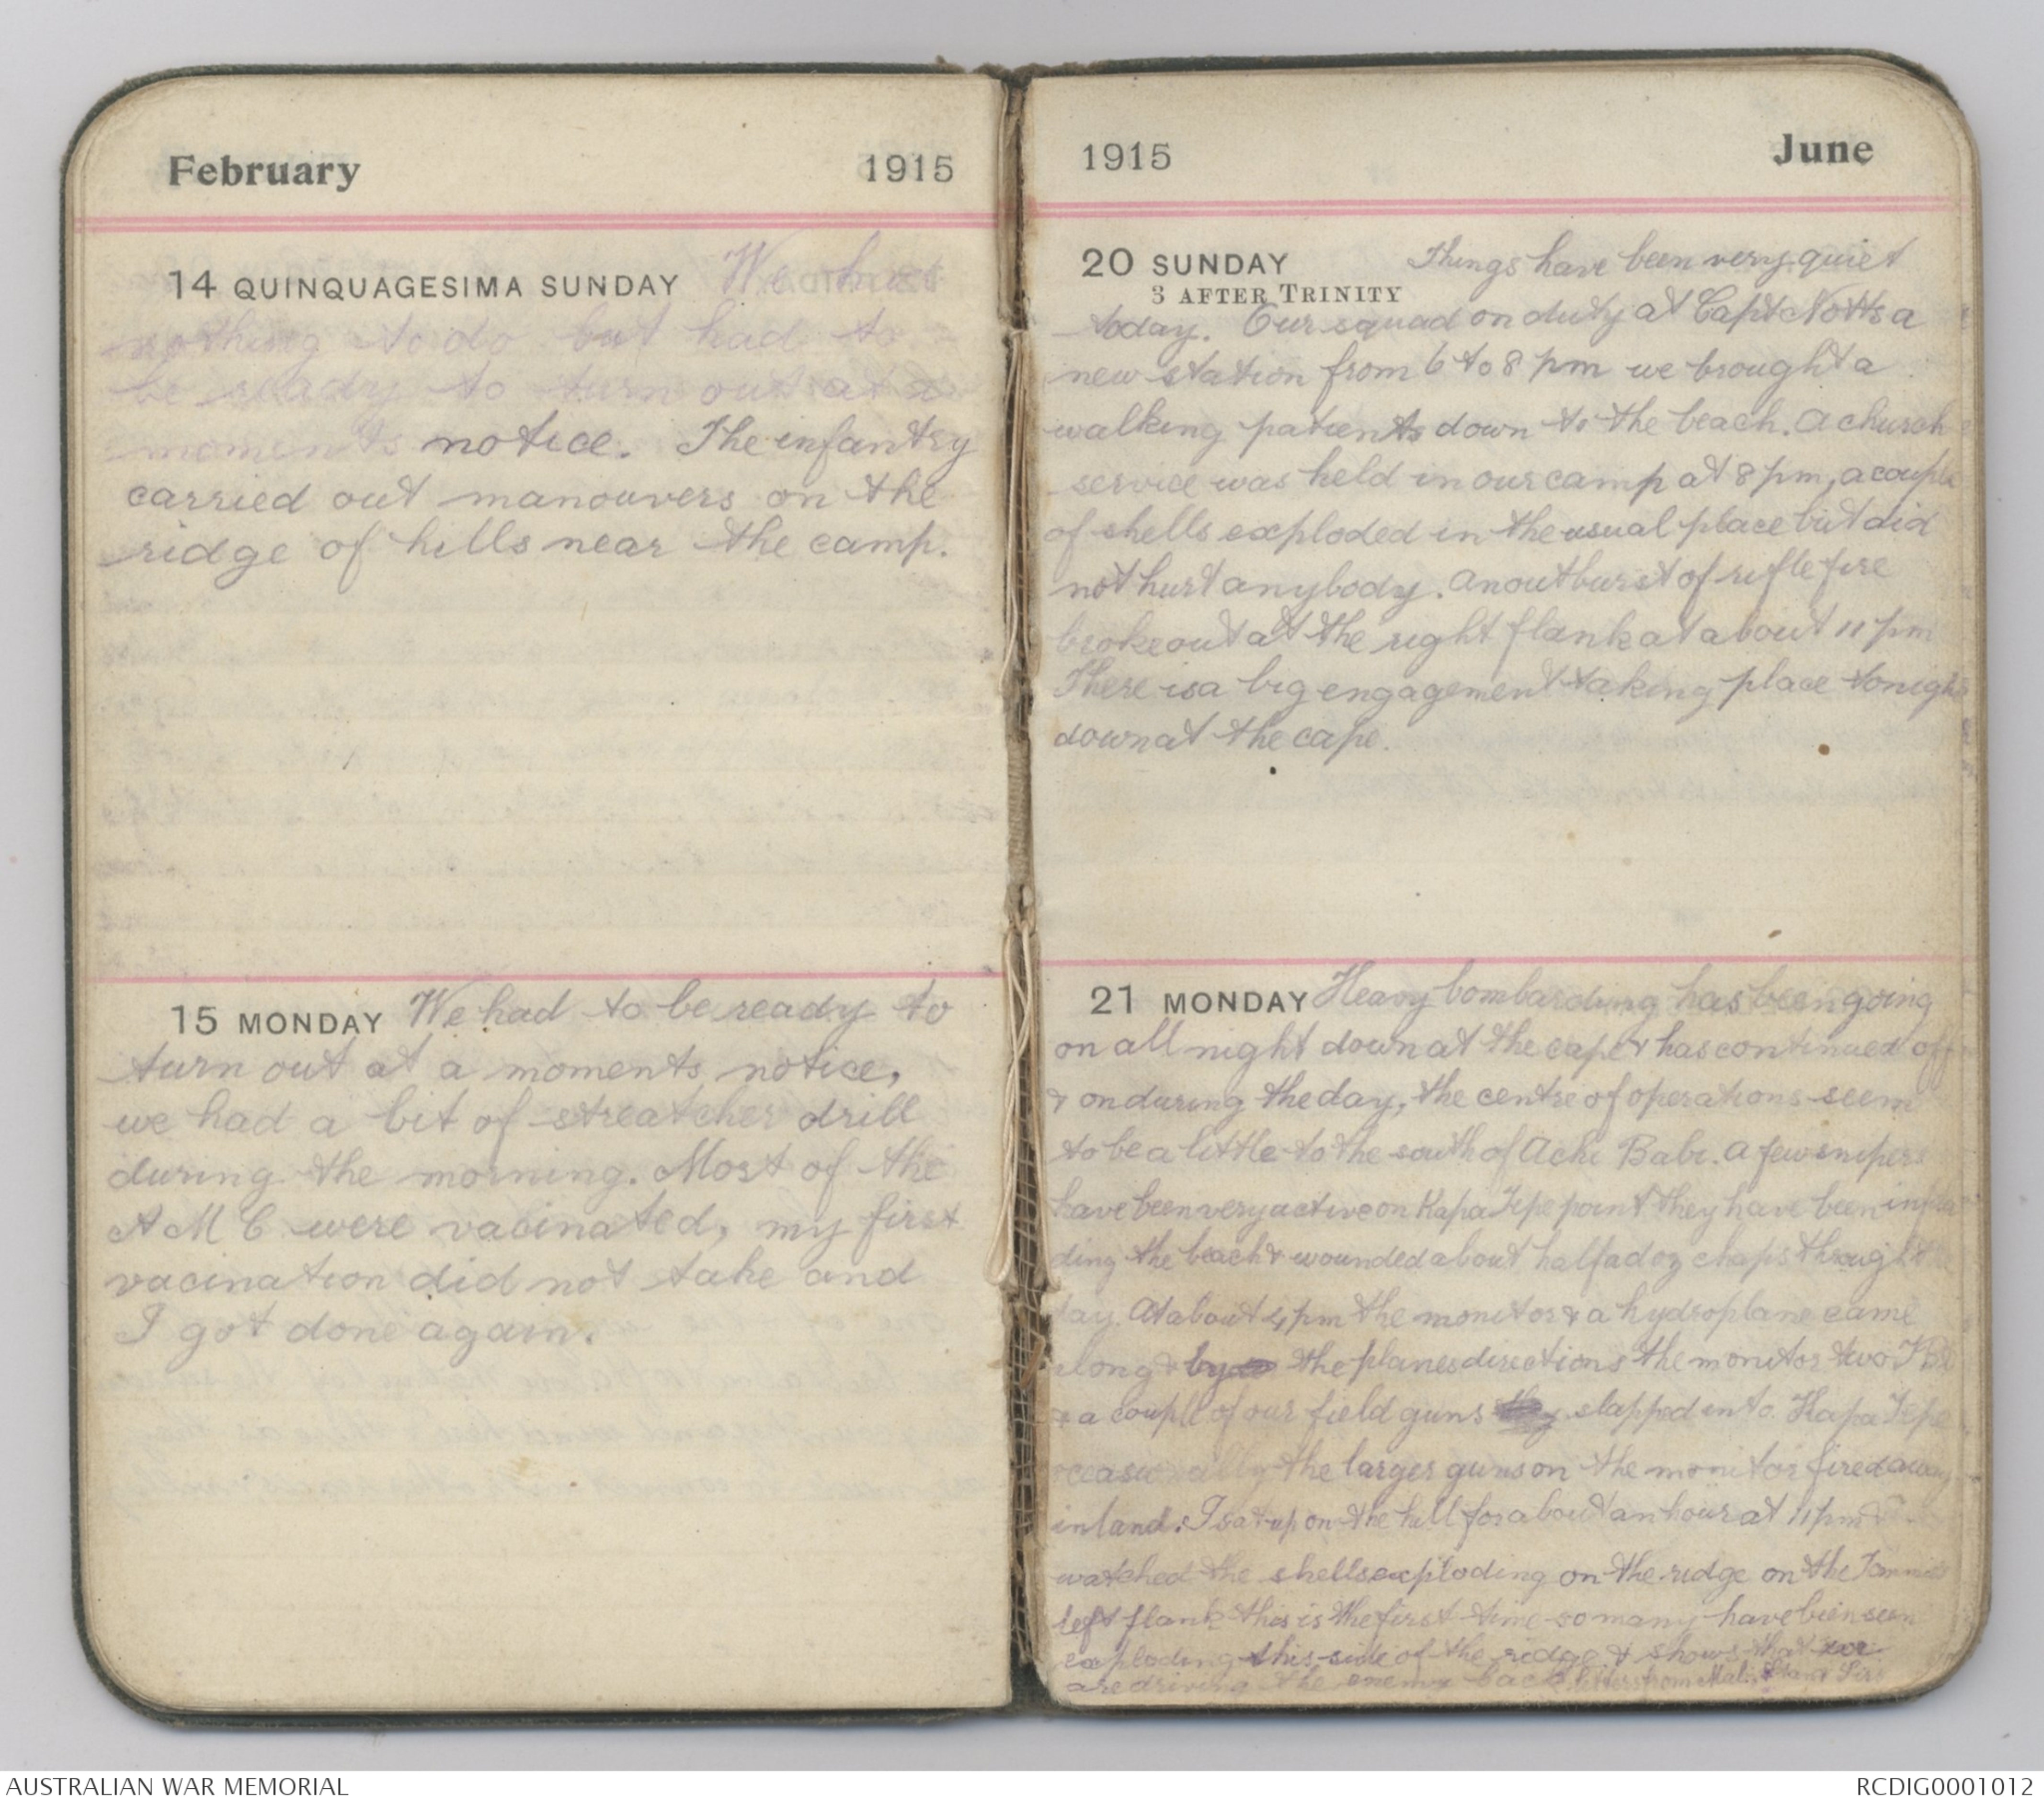 February 1915
14 QUINQUAGESIMA SUNDAY We had
nothing to do but had to
be ready to turn out at a
moments notice. The infantry
carried out manouvers on the
ridge of hills near the camp.
15 MONDAY We had to be ready to
turn out at a moments notice,
we had a bit of streatcher drill
during the morning. Most of the
A M C were vacinated, my first
vacination did not take and
I got done again.
1915 June
20 SUNDAY Things have been very quiet
3 AFTER TRINITY
today. Our squad on duty at Capt Notts a
new station from 6 to 8 pm we brought a
walking patients down to the beach. A church
service was held in our camp at 8 pm, a couple
of shells exploded in the usual place but did
not hurt anybody. An outburst of rifle fire
broke out at the right flank at about 11 pm
There is a big engagement taking place tonight
down at the cape.
21 MONDAY Heavy bombarding has been going
on all night down at the cape & has continued off
& on during the day, the centre of operations seem
to be a little to the south of Achi Babi. A few snipers
have been very active on Kapa Tepe point they have been
ding the beach & wounded about half a doz chaps through the
day. At about 4 pm the monitor & a hydroplane came
along & by the planes directions the monitor two
& a coupll of our field guns slapped into Kapa Tepe
the larger guns on the monitor fired away
inland. I sat up on the hill for about an hour at 11 pm &
watched the shells exploding on the ridge on the Tommies
left flank this is the first time so many have been seen
exploding this side of the ridge & shows that we
are driving the enemy back letters from
AUSTRALIAN WAR MEMORIAL RCDIG0001012